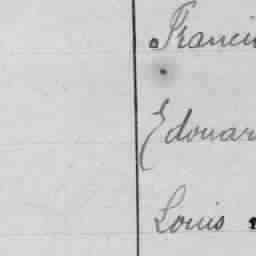 Francis
Edouar
Louis